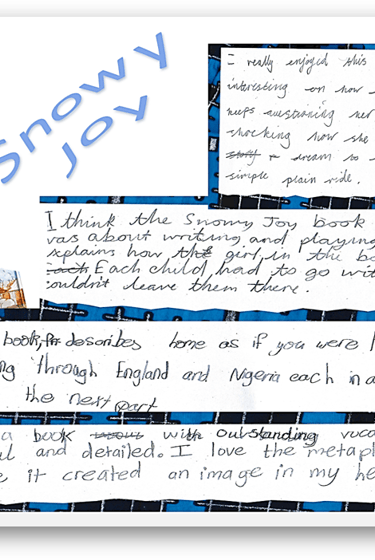 Snowy
Joy
I really enjoyed this
interesting on how
keeps questioning her
shocking how she
story & dream to
simple plain ride.
I think the Snowy Joy book
was about writing and playing
explains how the girl in the
Each child had to go
couldn't leave them there.
book, describes home as if you were
through England and Nigeria each in
the next part
a book with outstanding
and detailed. I love the
it created an image in my